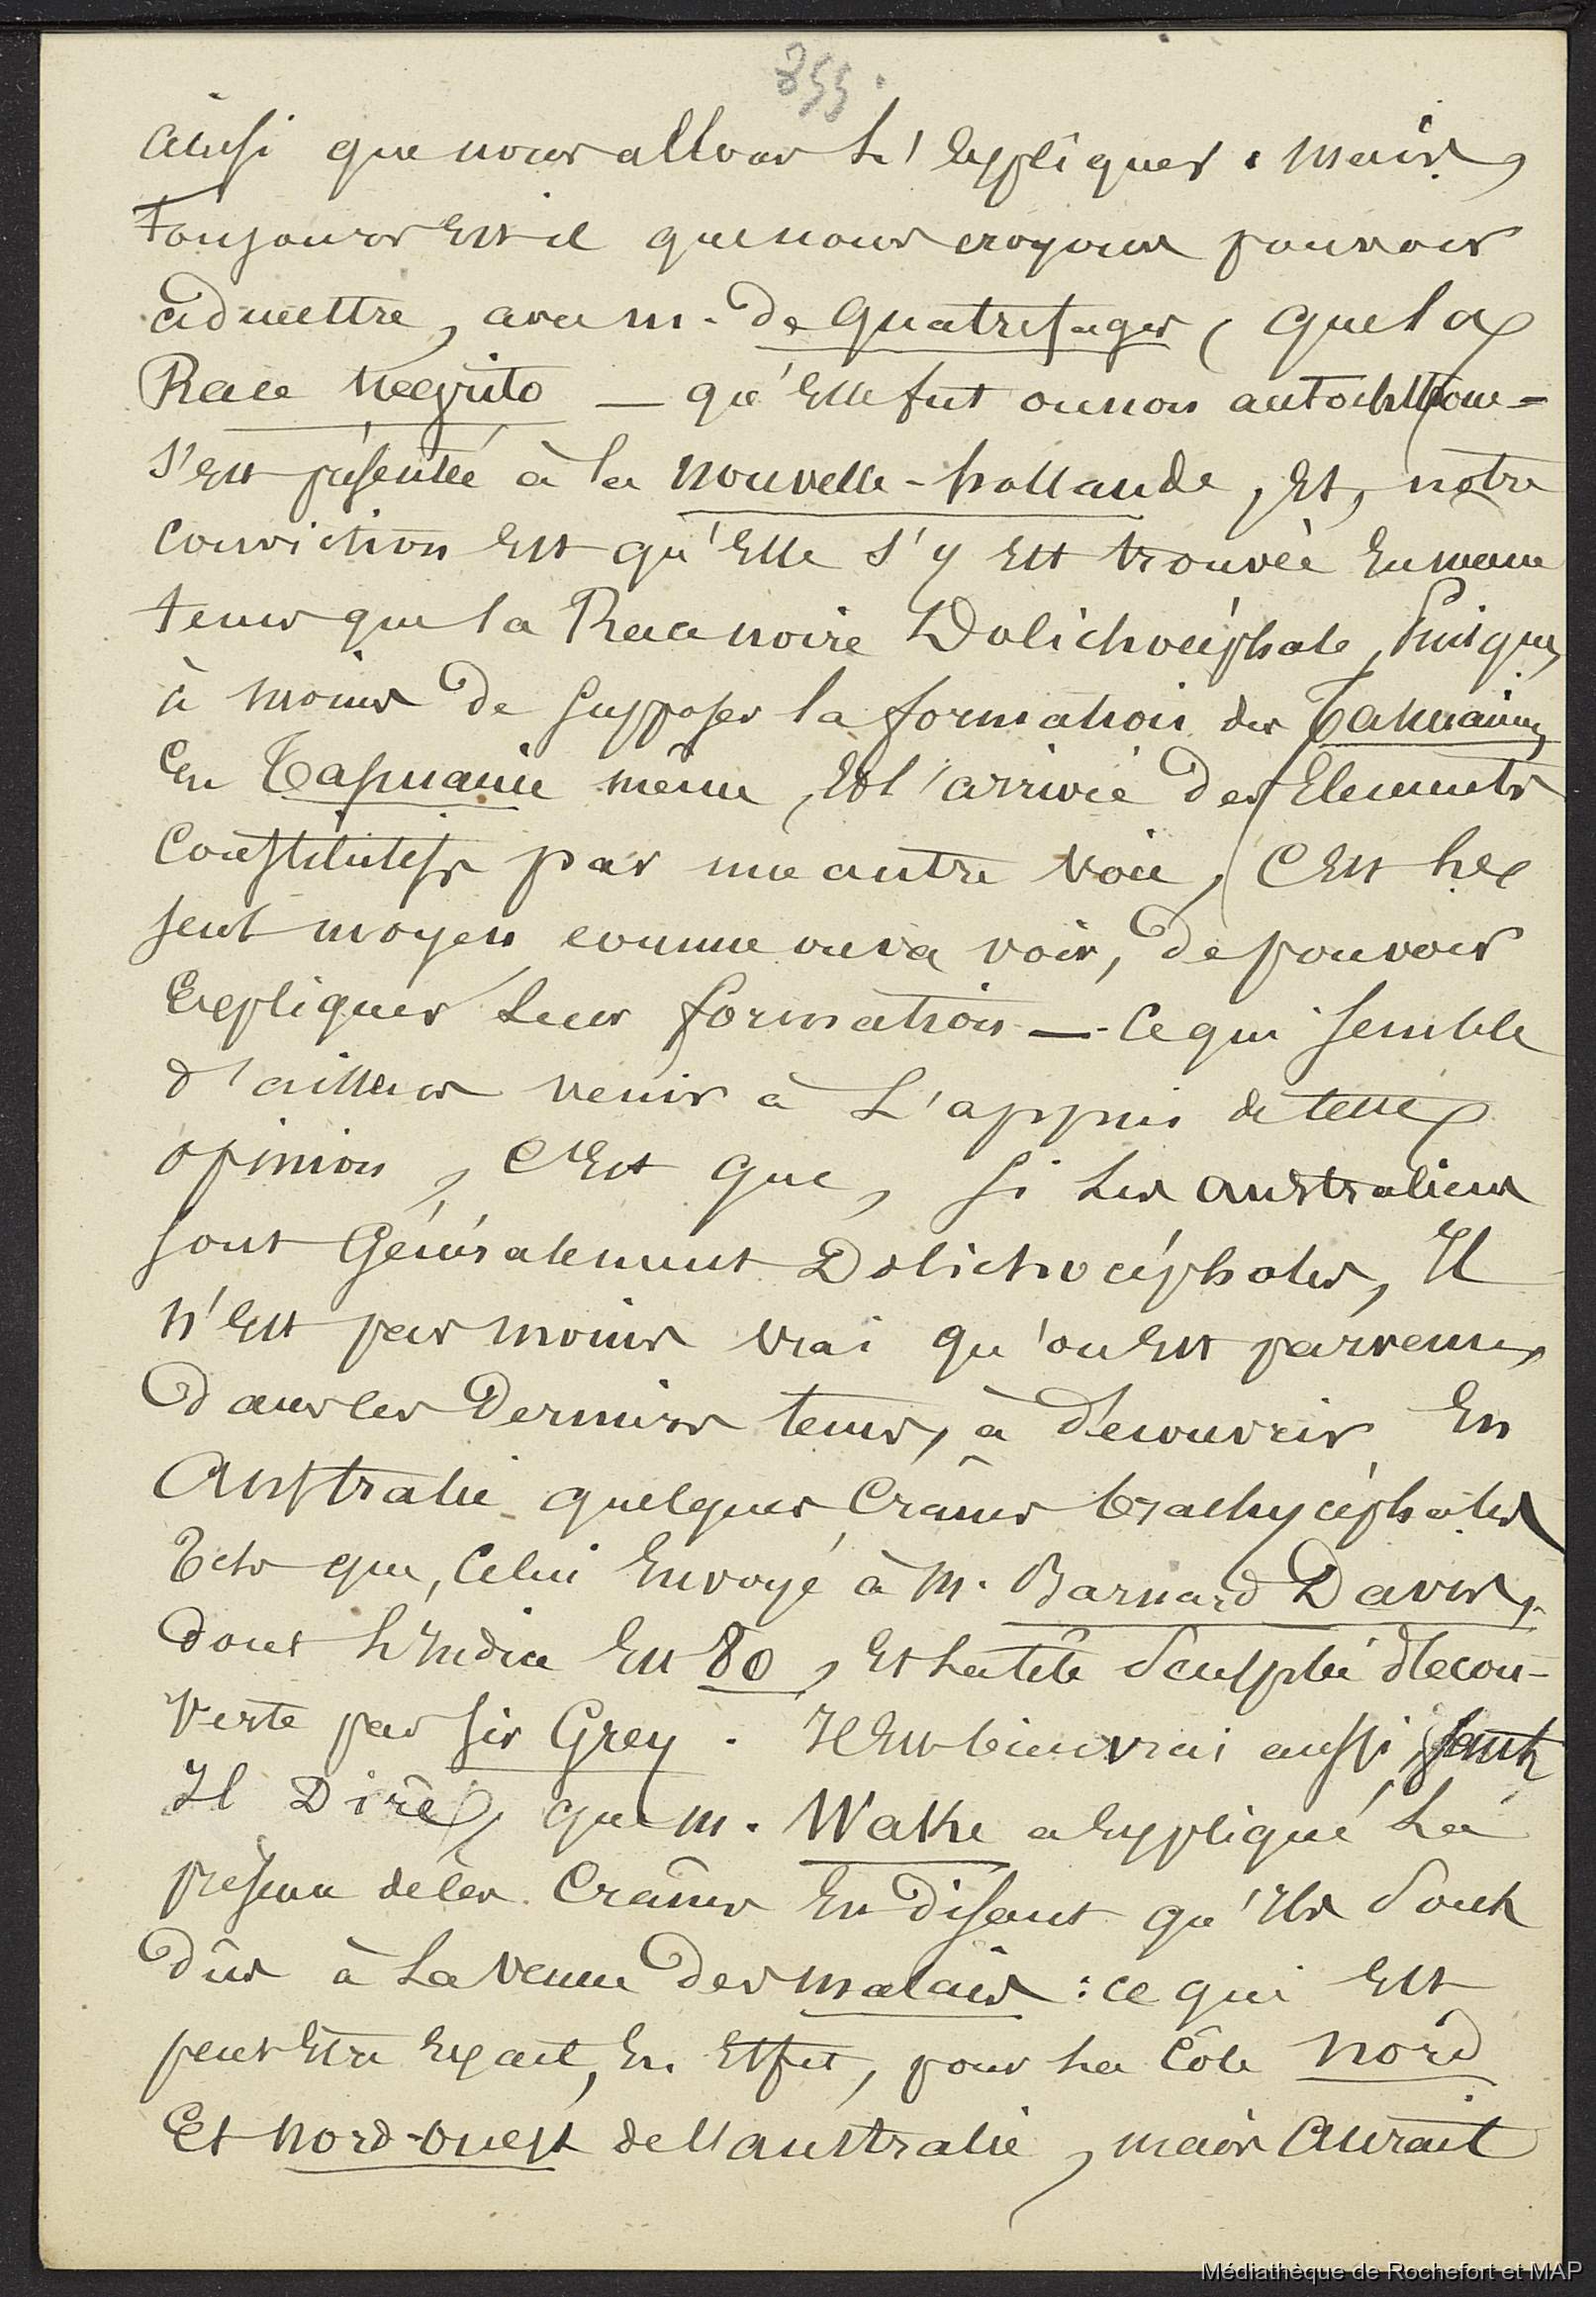 255.
ainsi que nous allons L'Expliquer. mais,
toujours Est-il que nous croyons pouvoir
admettre, avec m. de Quatrefages, que la
Race Negrito — qu'Elle fut ou non autochthone -
s'Est présentée à la nouvelle-hollande, Et, notre
conviction Est qu'Elle s'y Est trouvée En meme
tems que la Race noire Dolichocéphale, Puisque,
à moins de supposer la formation des Tasmaniens
En Tasmanie même, Et l'arrivée des Elements
Constitutifs par une autre voie, C'Est le
seul moyen comme on va voir, de pouvoir
Expliquer Leur formation — Ce qui semble
d'ailleurs venir à L'appui de cette
opinion, C'Est que, si Les australiens
sont Généralement Dolichocéphales, Il
n'Est pas moins vrai qu'on Est parvenu,
Dans les Derniers tems, à découvrir En
Australie quelques Crânes brachycéphales
Tels que, Celui Envoyé à M. Barnard Davis,
dont L'Indice Est 80, Et La tête Sculptée decou-
verte par sir Grey. Il Est bien vrai aussi, faut
Il Dire, que m. Wake a Expliqué La
présence de ces Crânes En Disant qu'Ils sont
dûs à La venue Des malais : ce qui Est
peut Etre Exact, En Effet, pour La Côte Nord
Et Nord-ouest de l'australie, mais Aurait
Médiathèque de Rochefort et MAP